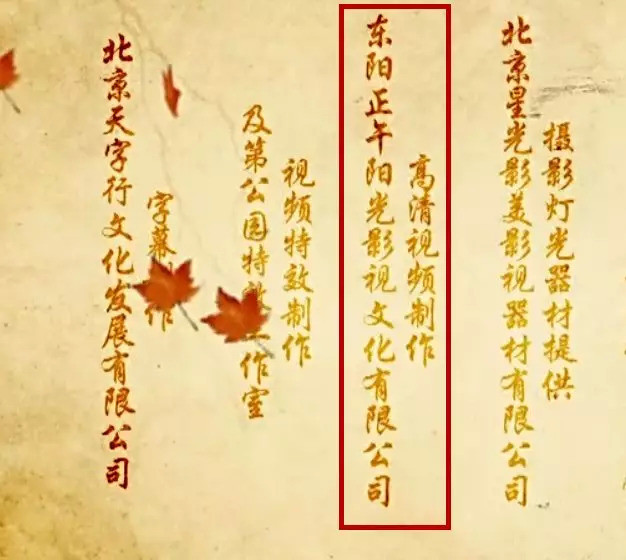 摄影灯光器材提供
北京星光影美影视器材有限公司
高清视频制作
东阳正午阳光影视文化有限公司
视频特效制作
及第公园特效工作室
字幕制作
北京天字行文化发展有限公司